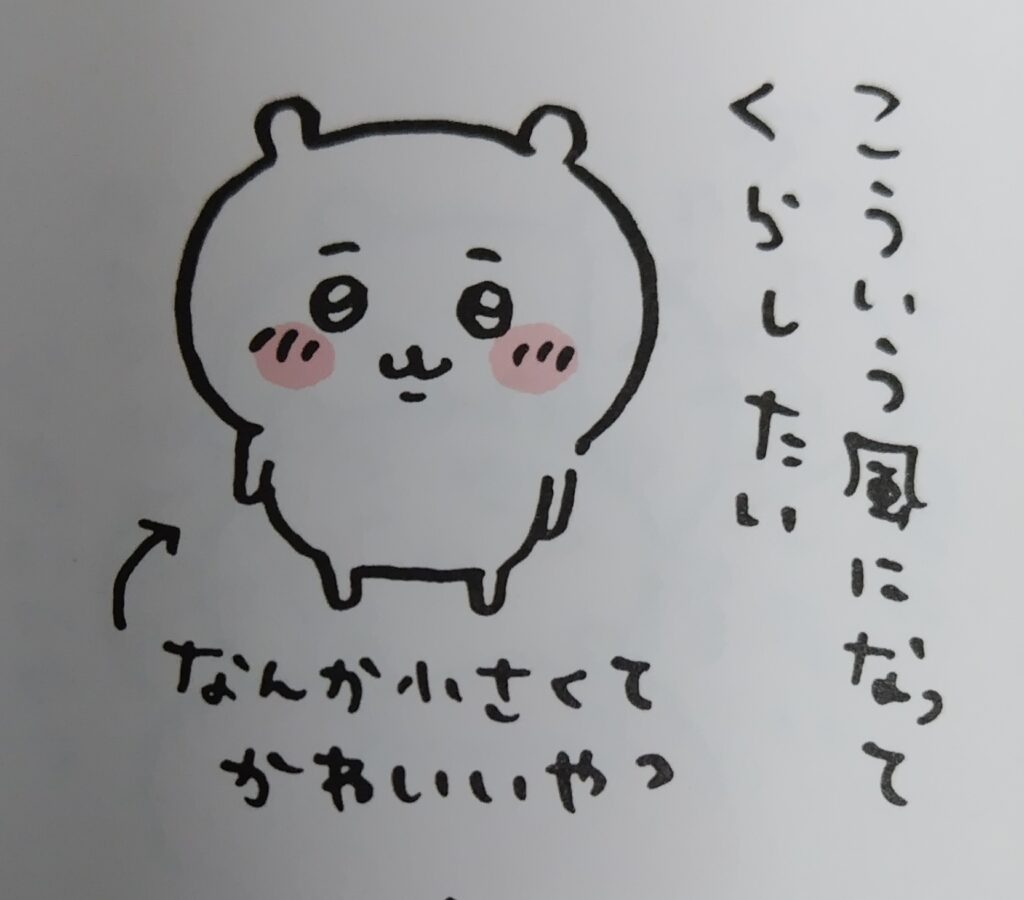 こういう風になって
くらしたい
なんか小さくて
かわいいやつ